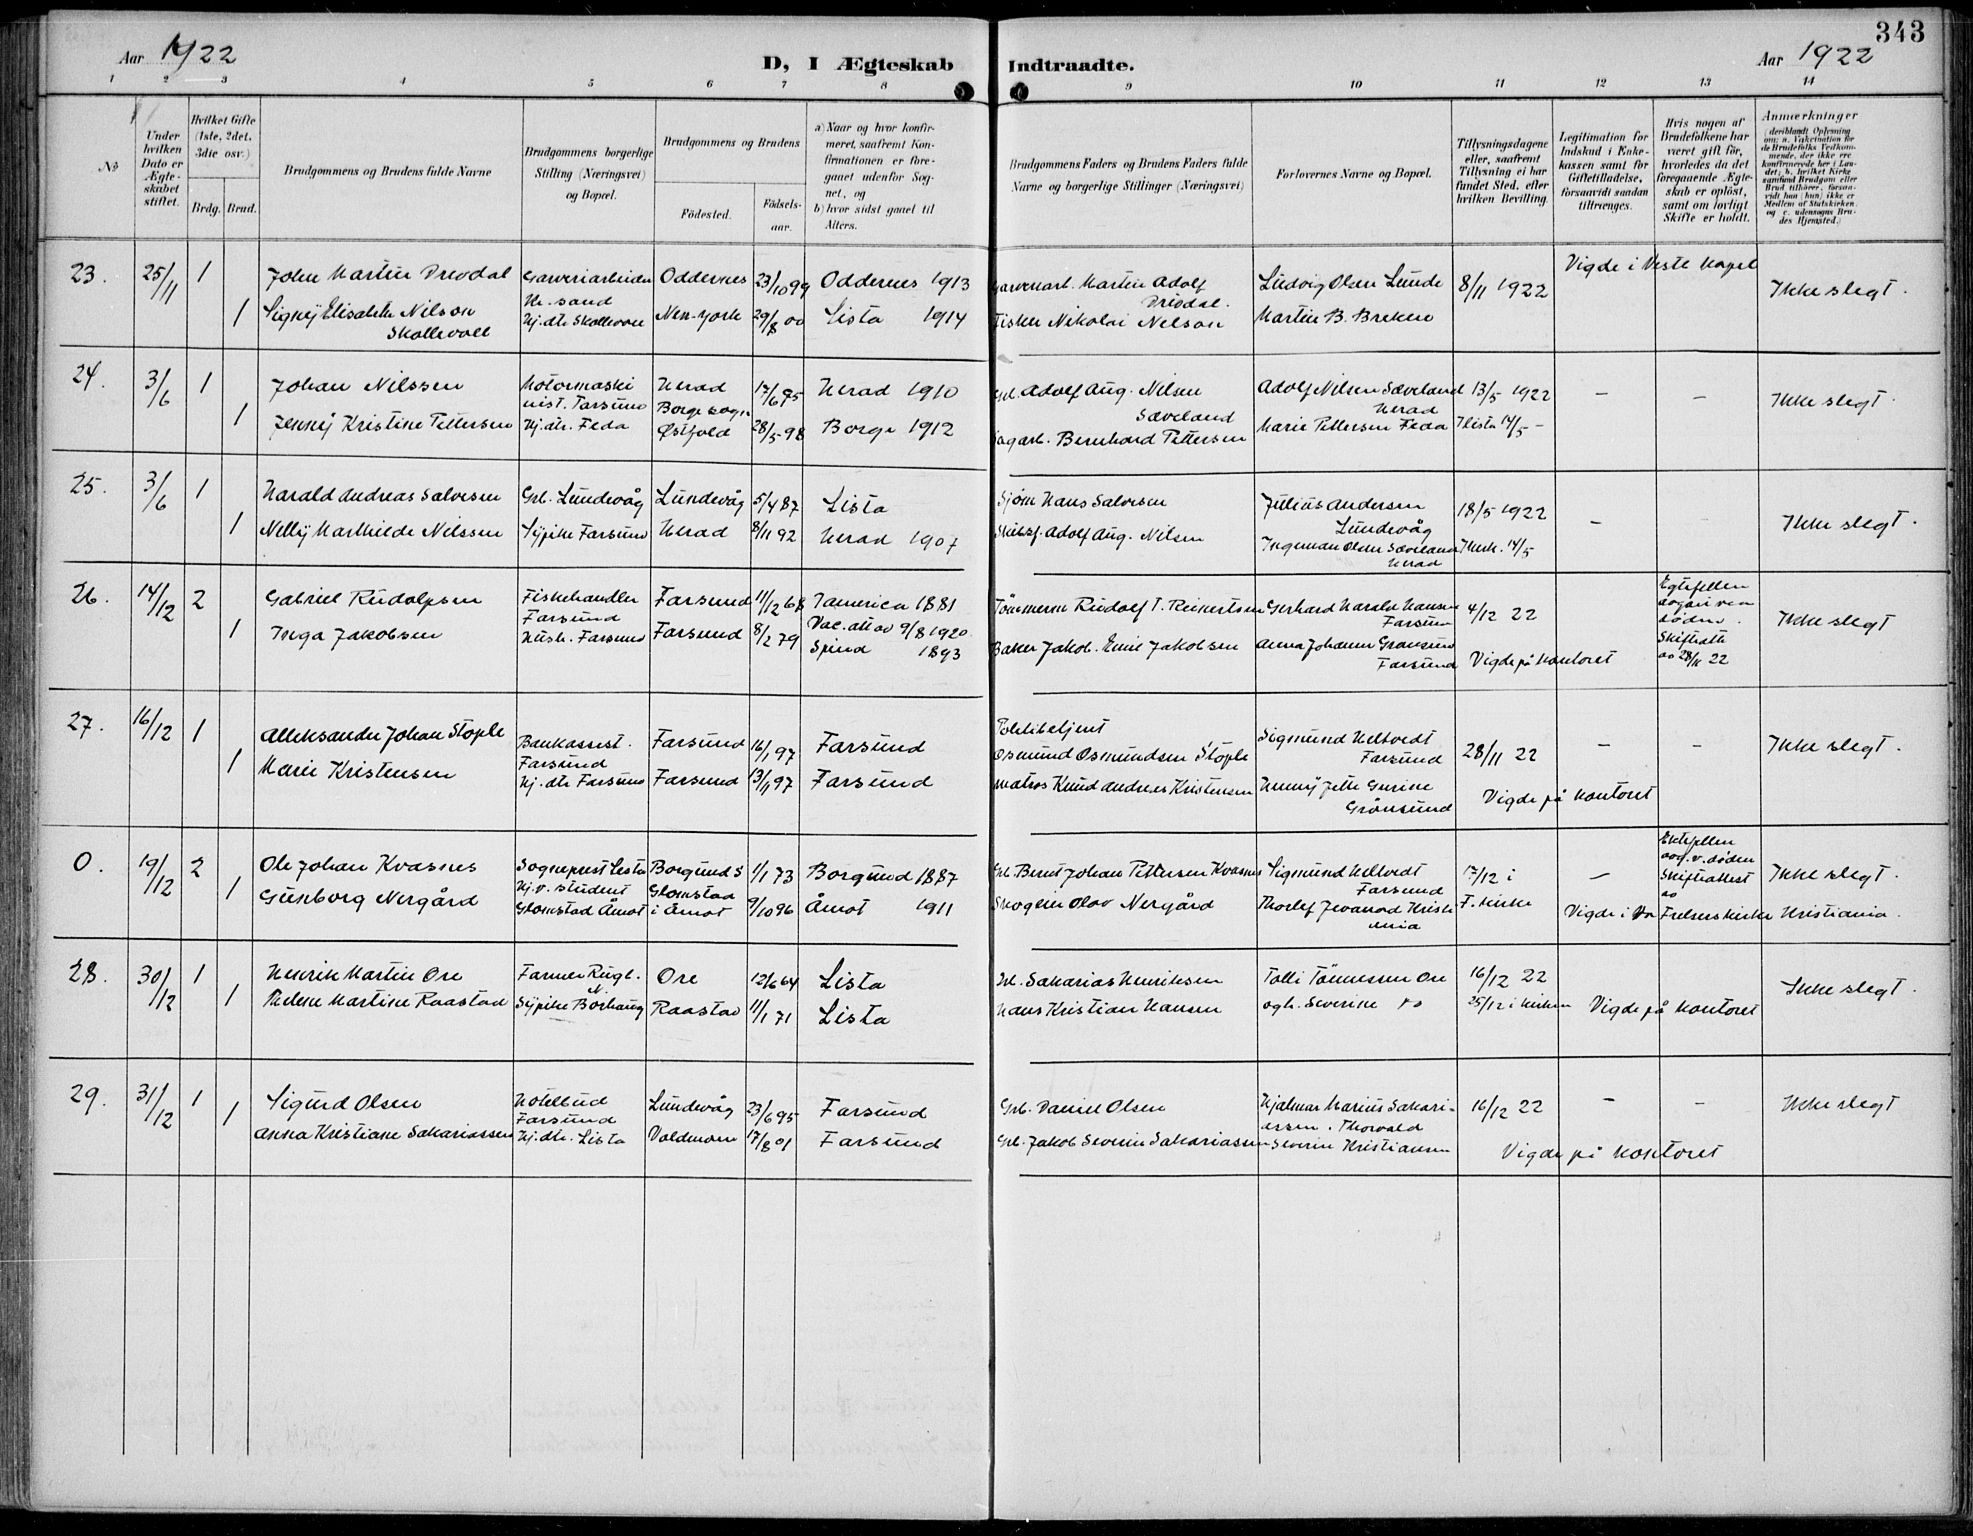 343
Aar 1922
D, I Ægteskab Indtraadte.
Aar 1922
1 2 3 4 5 6 7 8 9 10 11 12 13 14
No
Under hvilken Dato er Ægteskabet stiftet.
Hvilket Gifte (1ste, 2det, 3die osv.)
Brdg. Brud.
Brudgommens og Brudens fulde Navne
Brudgommens borgerlige Stilling (Næringsvei) og Bopæl.
Brudgommens og Brudens
Födested.
Födselsaar.
a) Naar og hvor konfirmeret, saafremt Konfirmationen er foregaaet udenfor Sognet, og
b) hvor sidst gaaet til Alters.
Brudgommens Faders og Brudens Faders fulde Navne og borgerlige Stillinger (Næringsvei)
Forlovernes Navne og Bopæl.
Tillysningsdagene eller, saafremt Tillysning ei har fundet Sted, efter hvilken Bevilling.
Legitimation for Indskud i Enkekassen samt for Giftetilladelse, forsaavidt saadan tiltrænges.
Hvis nogen af Brudefolkene har været gift för, hvorledes da det foregaaende Ægteskab er oplöst, samt om lovligt Skifte er holdt.
Anmærkninger
23. 25/11 1 John Martin Dreodal Garveriarbeider Oddernes 23/10 99 Oddernes 1913 Martin Adolf Ludvig Olsen Lunde 8/11 1922 Vigde i Veste Kapel Ikke slegt.
1 Signy Elisabeth Nilson Skollevoll Hj.dtr. Skollevoll New-York 29/8 00 Lista 1914 Fisker Nikolai Nelson Martin B. Brekne
24. 3/6 1 Johan Nilssen Motormaskinist. Farsund Herad 17/6 95 Herad 1910 Grb. Adolf Aug. Nilsen Sæveland Adolf Nilsen Sæveland Herad 13/5 1922 – – Ikke slegt.
1 Jenny Kristine Pettersen Hj.dtr. Feda Borge sogn Østfold 28/5 98 Borge 1912 Sagarb. Bernhard Pettersen Marie Pettersen Feda I lista 14/5 –
25. 3/6 1 Harald Andreas Salvesen Grb. Lundevåg Lundevåg 5/4 87 Lista Sjöm. Hans Salvesen Julius Andersen Lundevåg 18/5 1922 – Ikke slegt.
1 Nelly Marthilde Nilssen Sypike Farsund Herad 8/11 92 Herad 1907 Skibsf. Adolf Aug. Nilsen Ingeman Olsen Sæveland Herad I Herh. 14/5
26. 14/12 2 Gabriel Rudolfsen Fiskehandler Farsund Farsund 11/12 68 I America 1881 Vac.att av 9/8 1920 Tönsmerne Rudolf T. Reinertsen Gerhard Harald Hansen Farsun 4/12 22 Ikke slegt
1 Inga Jakobsen Hush. Farsund Farsund 8/2 79 Spind 1893 Baker Jakob Emil Jakobsen Anna Johanne Grønsund Farsund Vigde på kontoret 28/11 22
27. 16/12 1 Alleksander Johan Stople Bankassist. Farsund Farsund 16/1 97 Farsund Politibetjent Osmund Osmundsen Stople Sigmund Heltvedt Farsund 28/11 22 – – Ikke slegt.
1 Marie Kristensen Hj.dtr Farsund Farsund 13/11 97 Farsund Matros Knud Andreas Kristensen Henny Jette Gurine Grönsund Vigde på kontoret
0. 19/12 2 Ole Johan Kvasnes Sogneprest Lista Borgund S 1/1 73 Borgund 1887 Grb. Bernt Johan Pettersen Kvasnes Sigmund Heltvedt Farsund 17/12 i F. kirke – Skifteattest Ikke slegt.
1 Gunborg Nergård Hj.v. student Glomstad Åmot Glomstad i Åmot 9/10 96 Åmot 1911 Skogeier Olav Nergård Thorlef Jevanord Kristiania Vigde i Vor Frelsers kirke Kristiania.
28. 30/12 1 Henrik Martin Ore Farmer Rugl. N. Ore 12/6 64 Lista Grb. Sakarias Henriksen Tolli Tönnessen Ore 16/12 22 Ikke slegt.
1 Thelene Martine Raastad Sypike Borhaug Raastad 11/1 71 Lista Hans Kristian Hansen ogh. Severine 25/12 i kirken Vigde på kontoret
29. 31/12 1 Sigurd Olsen Hotelbud Farsund Lundevåg 23/6 95 Farsund Grb. Daniel Olsen Hjalmar Marius Sakariassen. Thorvald 16/12 22 – – Ikke slegt
1 Anna Kristiane Sakariassen Hj.dtr. Lista Voldmoen 17/8 01 Farsund Grb. Jakob Severin Sakariassen Severin Kristiansen Vigde på kontoret